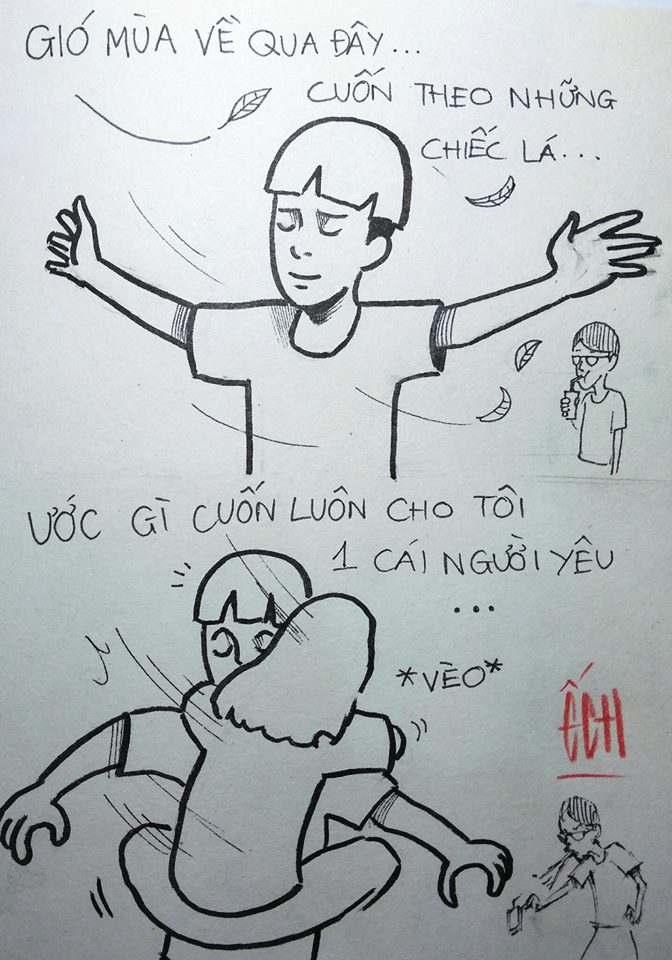 GIÓ MÙA VỀ QUA ĐÂY...
CUỐN THEO NHỮNG
CHIẾC LÁ...
ƯỚC GÌ CUỐN LUÔN CHO TÔI
1 CÁI NGƯỜI YÊU
...
*VÈO*
ẾCH